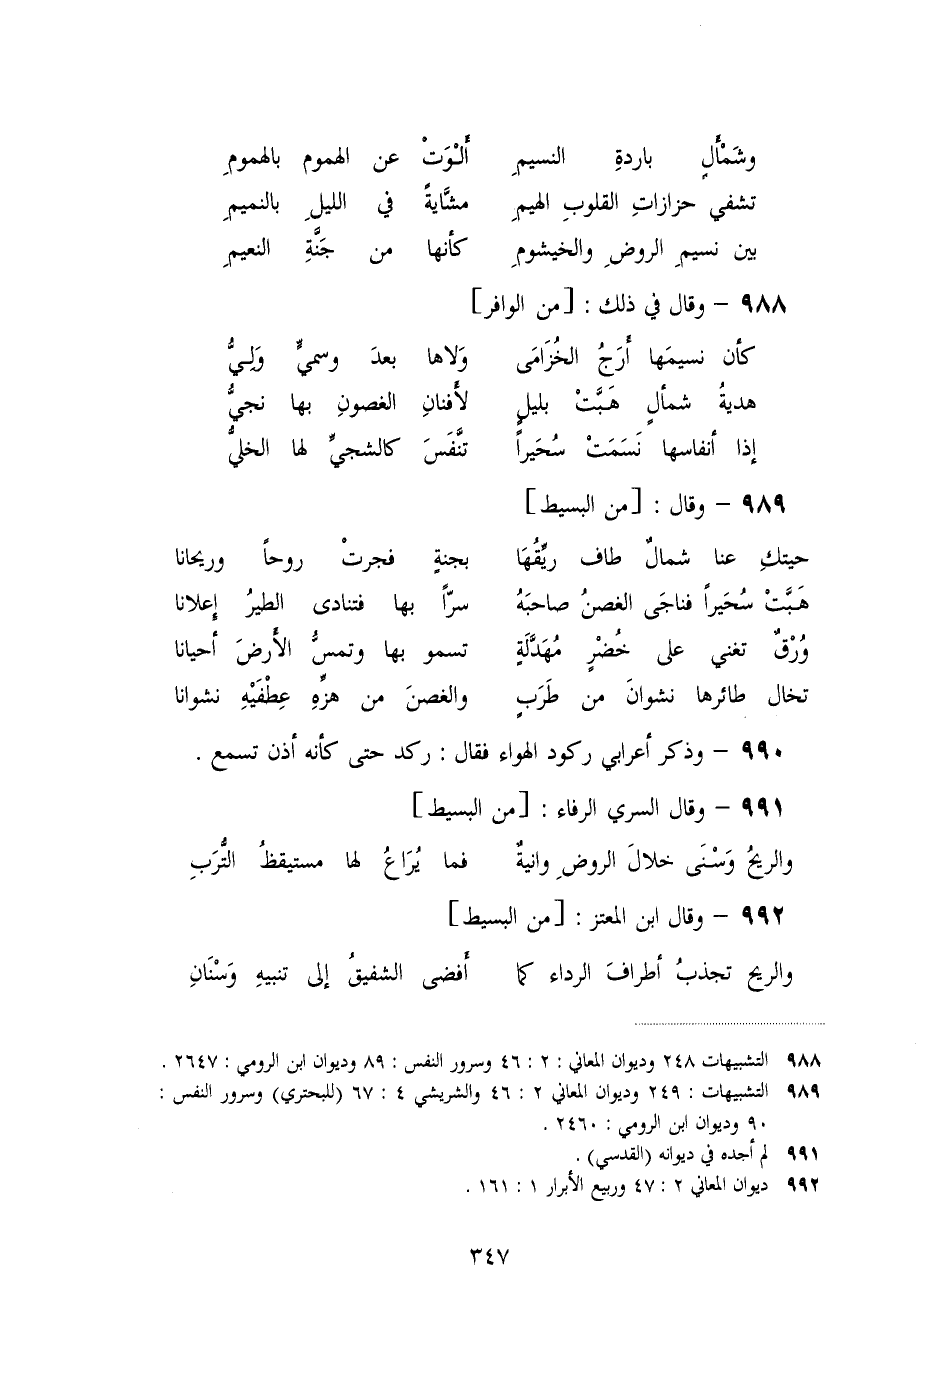 وشَمْأَلٍ باردةِ النسيمِ أَلْوَتْ عن الهموم بالهمومِ
تشفي حزازاتِ القلوبِ الهيمِ مشَّايةً في الليلِ بالنميمِ
بين نسيمِ الروضِ والخيشومِ كأنها من جَنَّةِ النعيمِ
٩٨٨ – وقال في ذلك : [من الوافر]
كأن نسيمَها أَرَجُ الخُزَامَى وَلاها بعدَ وسميٍّ وَلِيُّ
هديةُ شمألٍ هَبَّتْ بليلٍ لأَفنانِ الغصونِ بها نجيُّ
إذا أنفاسها نَسَمَتْ سُحَيراً تنَّفَسَ كالشجيِّ لها الخليُّ
٩٨٩ – وقال : [من البسيط]
حيتكِ عنا شمالٌ طاف ريِّقُهَا بجنةٍ فجرتْ روحاً وريحانا
هَبَّتْ سُحَيراً فناجَى الغصنُ صاحبَهُ سرّاً بها فتنادى الطيرُ إعلانا
وُرْقٌ تغني على خُضْرٍ مُهَدَّلَةٍ تسمو بها وتمسُّ الأَرضَ أحيانا
تخال طائرها نشوانَ من طَرَبٍ والغصنَ من هزِّهِ عِطْفَيْهِ نشوانا
٩٩٠ – وذكر أعرابي ركود الهواء فقال : ركد حتى كأنه أذن تسمع .
٩٩١ – وقال السري الرفاء : [من البسيط]
والريحُ وَسْنَى خلالَ الروضِ وانيةٌ فما يُرَاعُ لها مستيقظُ التُّرَبِ
٩٩٢ – وقال ابن المعتز : [من البسيط]
والريح تجذبُ أطرافَ الرداء كما أَفضى الشفيقُ إلى تنبيهِ وَسْنَانِ
٩٨٨ التشبيهات ٢٤٨ وديوان المعاني : ٢ : ٤٦ وسرور النفس : ٨٩ وديوان ابن الرومي : ٢٦٤٧ .
٩٨٩ التشبيهات : ٢٤٩ وديوان المعاني ٢ : ٤٦ والشريشي ٤ : ٦٧ (للبحتري) وسرور النفس :
٩٠ وديوان ابن الرومي : ٢٤٦٠ .
٩٩١ لم أجده في ديوانه (القدسي) .
٩٩٢ ديوان المعاني ٢ : ٤٧ وربيع الأبرار ١ : ١٦١ .
٣٤٧